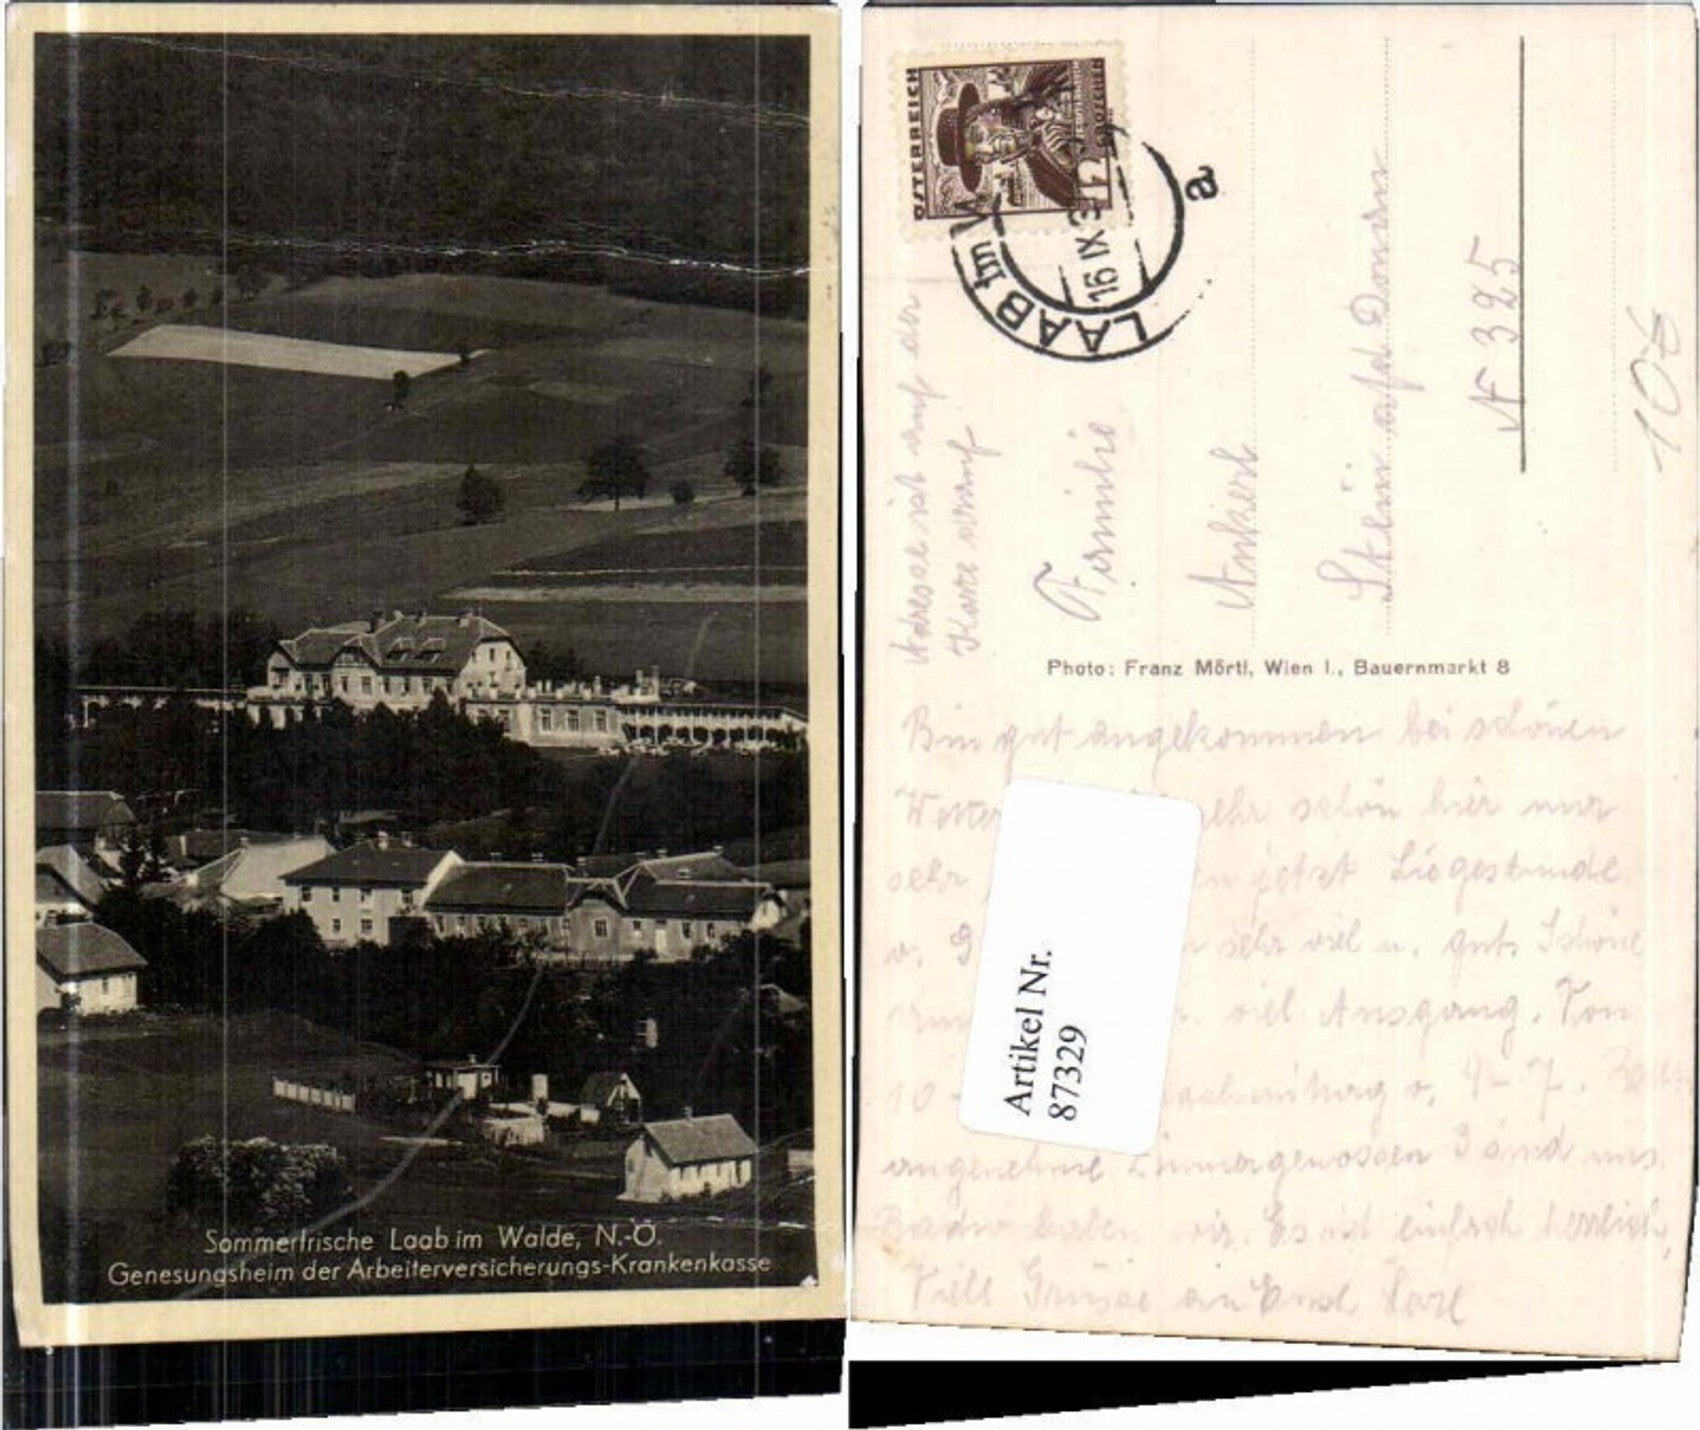 Sommerfrische Laab im Walde, N.-Ö.
Genesungsheim der Arbeiterversicherungs-Krankenkasse
ÖSTERREICH
12
LAAB im W
16 IX 3
a
Adresse ist auf der
Karte vorauf
Familie
Stein a/d Donau
N 325
10€
Photo: Franz Mörtl, Wien I., Bauernmarkt 8
Bin gut angekommen bei schönen
Wetter sehr schön hier nur
sehr jetzt Liegestunde
sehr viel u. gut. Schöne
viel Ausgang. Von
10 - 4-7.
angenehme Zimmergenossen 3 sind uns.
Radio haben wir. Es ist einfach herrlich,
Viele Grüsse an Euch Karl
Artikel Nr.
87329